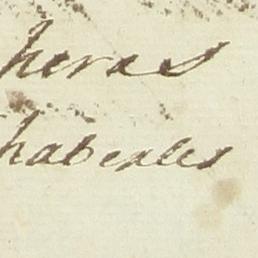 heras
habenles